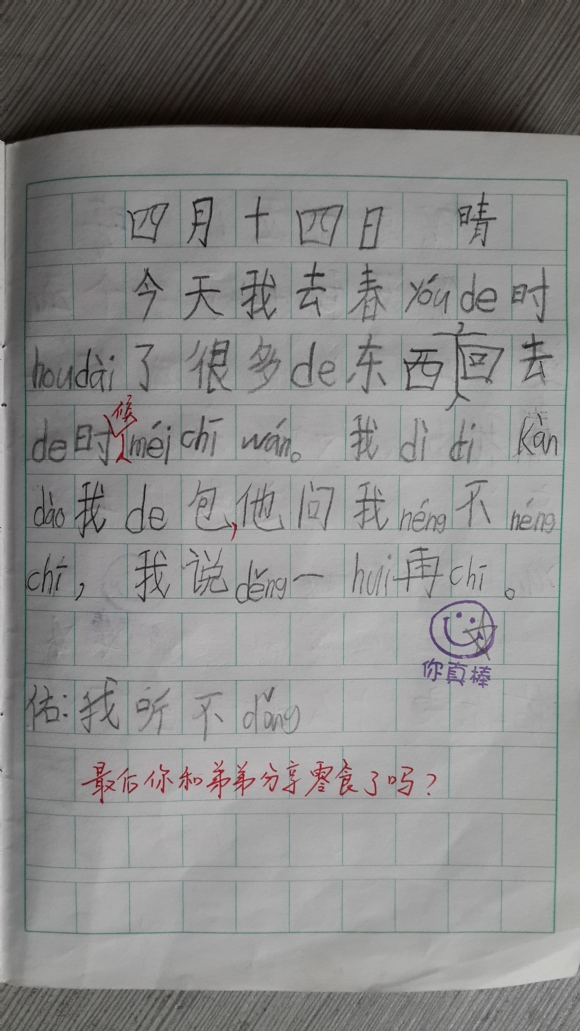 四月十四日 晴
今天我去春yóu de时
hou dài了很多de东西回去
de时候méi chī wán。我dì di kàn
dào我de包,他问我néng不néng
chī,我说děng一hui再chī。
你真棒
佑:我听不dǒng
最后你和弟弟分享零食了吗?